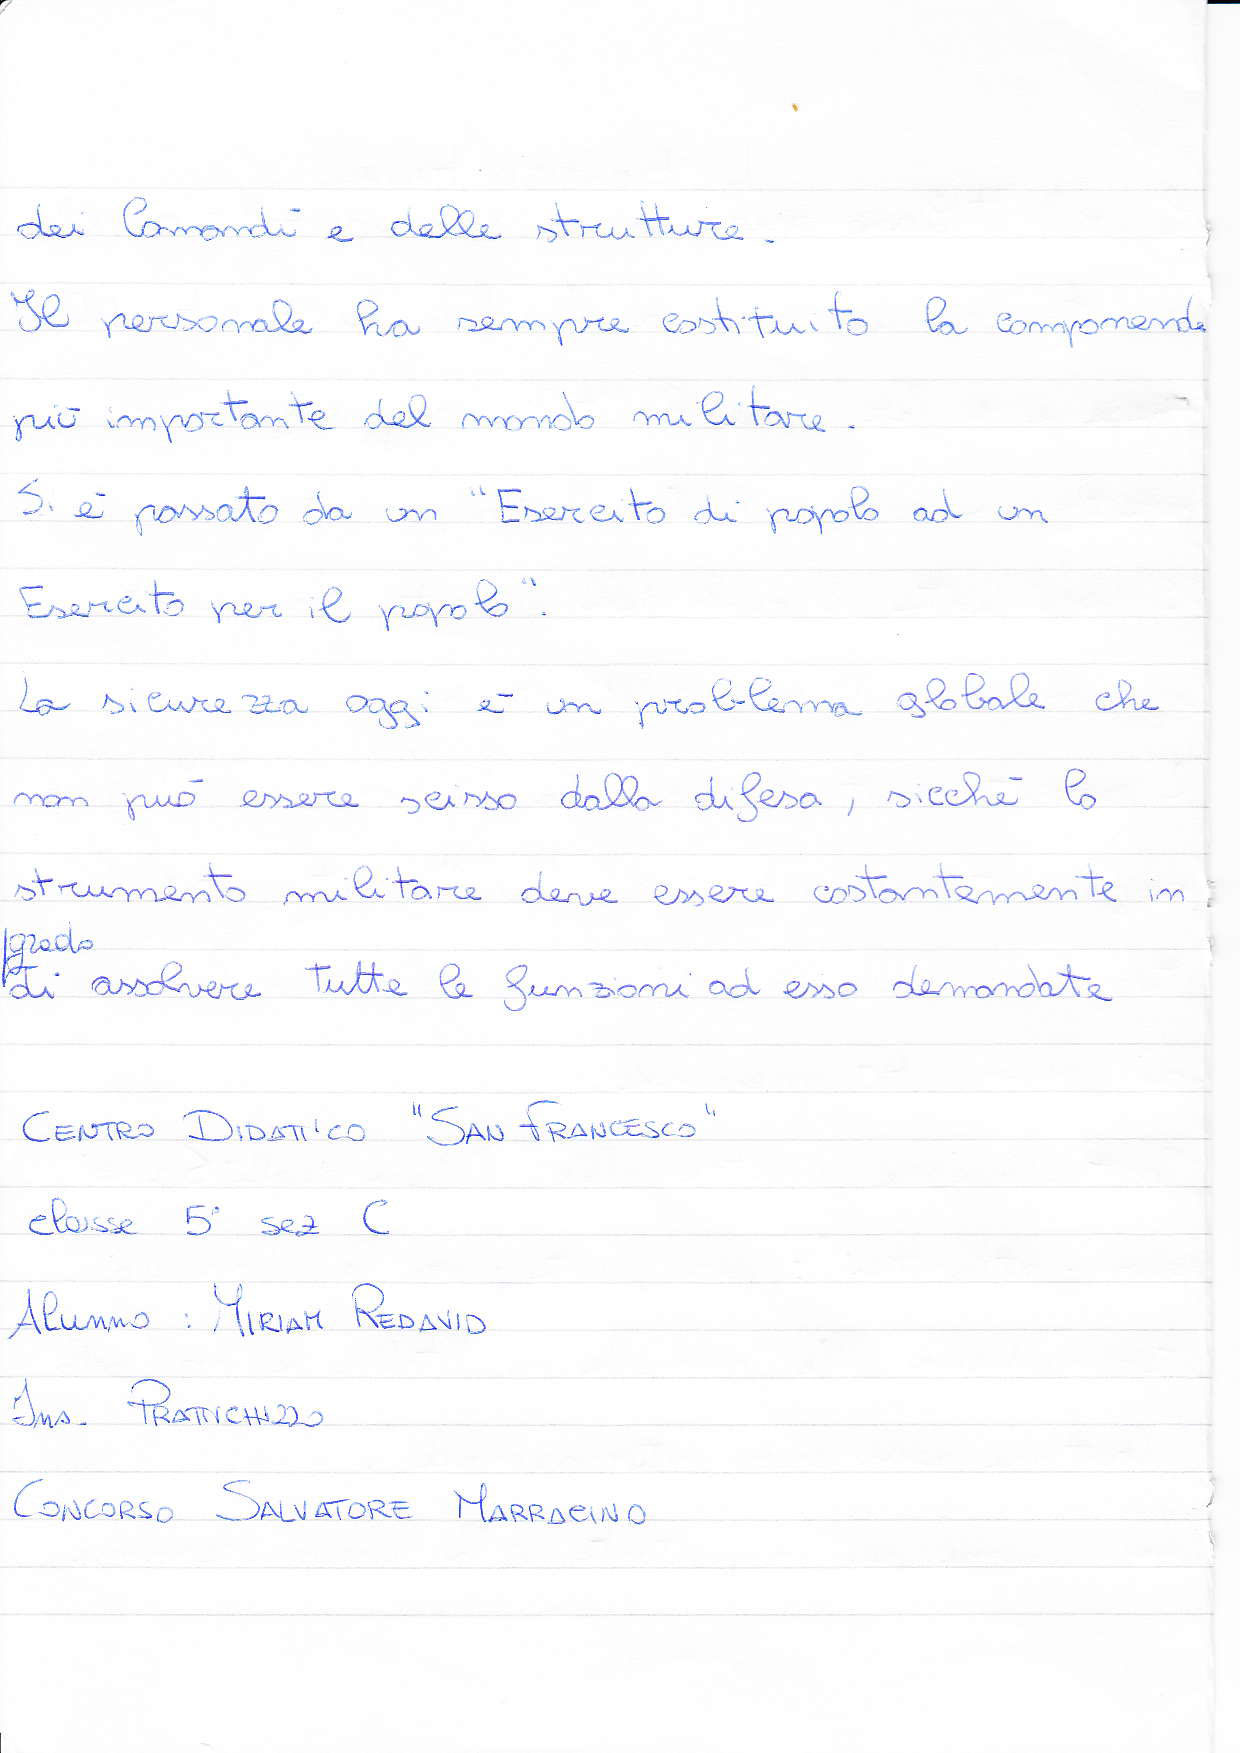 dei Comandi e delle strutture.
Il personale ha sempre costituito la componende
più importante del mondo militare.
Si è passato da un "Esercito di popolo ad un
Esercito per il popolo".
La sicurezza oggi è un problema globale che
non può essere scisso dalla difesa, sicchè lo
strumento militare deve essere costantemente in
grado
di assolvere tutte le funzioni ad esso demandate
CENTRO DIDATTICO "SAN FRANCESCO"
classe 5° sez C
Alunno : MIRIAM REDAVID
Ins. PRATTICHIZZO
CONCORSO SALVATORE MARRACINO